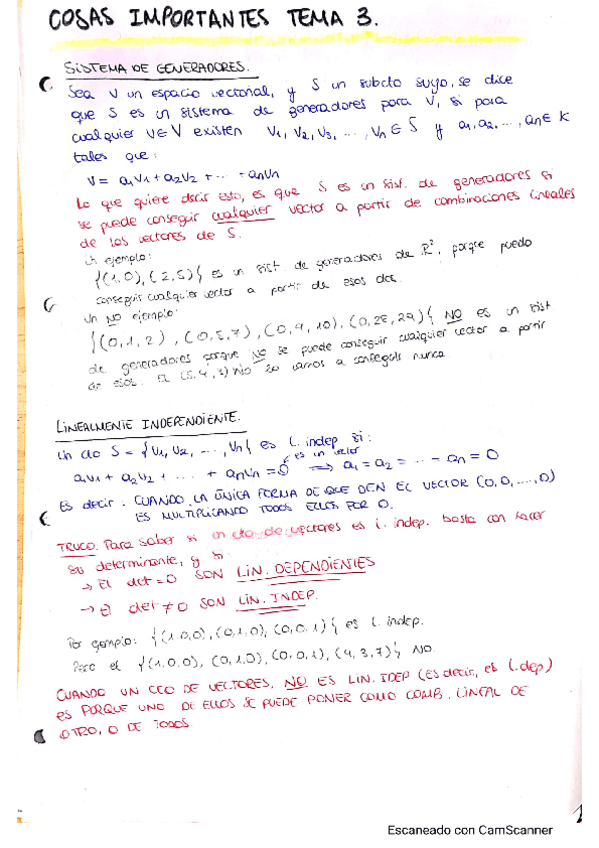 COSAS IMPORTANTES TEMA 3.
SISTEMA DE GENERADORES.
Sea V un espacio vectorial, y S un subcto suyo, se dice
que S es un sistema de generadores para V, si para
cualquier v∈V existen V1, V2, V3, ..., Vn ∈ S y a1, a2, ..., an ∈ K
tales que:
V = a1V1 + a2V2 + ... + anVn
Lo que quiere decir esto, es que S es un sist. de generadores si
se puede conseguir cualquier vector a partir de combinaciones lineales
de los vectores de S.
Un ejemplo:
{(1,0), (2,5)} es un sist. de generadores de R², porque puedo
conseguir cualquier vector a partir de esos dos.
Un NO ejemplo:
{(0,1,2), (0,5,7), (0,9,10), (0,28,29)} NO es un sist
de generadores porque no se puede conseguir cualquier vector a partir
de esos. El (5,4,3) NO lo vamos a conseguir nunca.
LINEALMENTE INDEPENDIENTE.
Un cto S = {V1, V2, ..., Vn} es l. indep si:
es un vector
a1V1 + a2V2 + ... + anVn = 0 ⟹ a1 = a2 = ... = an = 0
Es decir: CUANDO LA ÚNICA FORMA DE QUE DEN EL VECTOR (0,0,...,0)
ES MULTIPLICANDO TODOS ELLOS POR 0.
TRUCO. Para saber si un cto de vectores es l. indep. basta con hacer
su determinante, y si
→ El det = 0 SON LIN. DEPENDIENTES
→ El det ≠ 0 SON LIN. INDEP.
Por ejemplo: {(1,0,0), (0,1,0), (0,0,1)} es l. indep.
Pero el {(1,0,0), (0,1,0), (0,0,1), (4,3,7)} NO.
CUANDO UN CTO DE VECTORES, NO ES LIN. IDEP (Es decir, es l.dep)
ES PORQUE UNO DE ELLOS SE PUEDE PONER COMO COMB. LINEAL DE
OTRO, O DE TODOS.
Escaneado con CamScanner